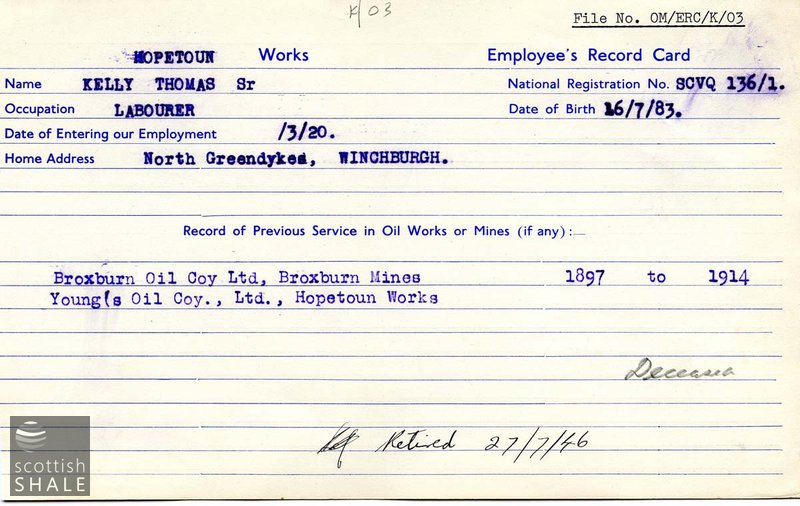 K/03
File No. OM/ERC/K/03
HOPETOUN Works Employee's Record Card
Name KELLY THOMAS Sr National Registration No. SCVQ 136/1.
Occupation LABOURER Date of Birth 16/7/83.
Date of Entering our Employment /3/20.
Home Address North Greendykes, WINCHBURGH.
Record of Previous Service in Oil Works or Mines (if any):—
Broxburn Oil Coy Ltd, Broxburn Mines 1897 to 1914
Young's Oil Coy., Ltd., Hopetoun Works
Deceased
Retired 27/7/46
scottish
SHALE